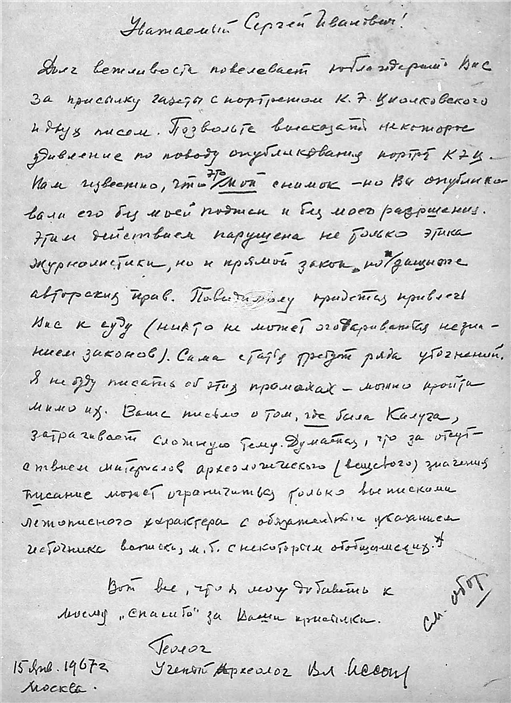 Уважаемый Сергей Иванович!
Долг вежливости повелевает поблагодарить Вас
за присылку газеты с портретом К.Э. Циолковского
и двух писем. Позвольте высказать некоторое
удивление по поводу опубликования портр КЭЦ.
Вам известно, что это мой снимок – но Вы опублико-
вали его без моей подписи и без моего разрешения.
Этим действием нарушена не только этика
журналистики, но и прямой закон „по защите
авторских прав. Повидимому придется привлечь
Вас к суду (никто не может оговариваться незна-
нием законов). Сама статья требует ряда уточнений.
Я не буду писать об этих промахах – можно пройти
мимо их. Ваше письмо о том, где была Калуга,
затрагивает сложную тему. Думается, что за отсут-
ствием материалов археологического (вещевого) значения
писание может ограничиться только выписками
летописного характера с обязательным указанием
источника выписки, м.б. с некоторым
Вот все, что я могу добавить к
моему „спасибо" за Ваши присылки.
см. обор
Геолог
15 янв. 1967 г Ученый Археолог Вл
Москва.